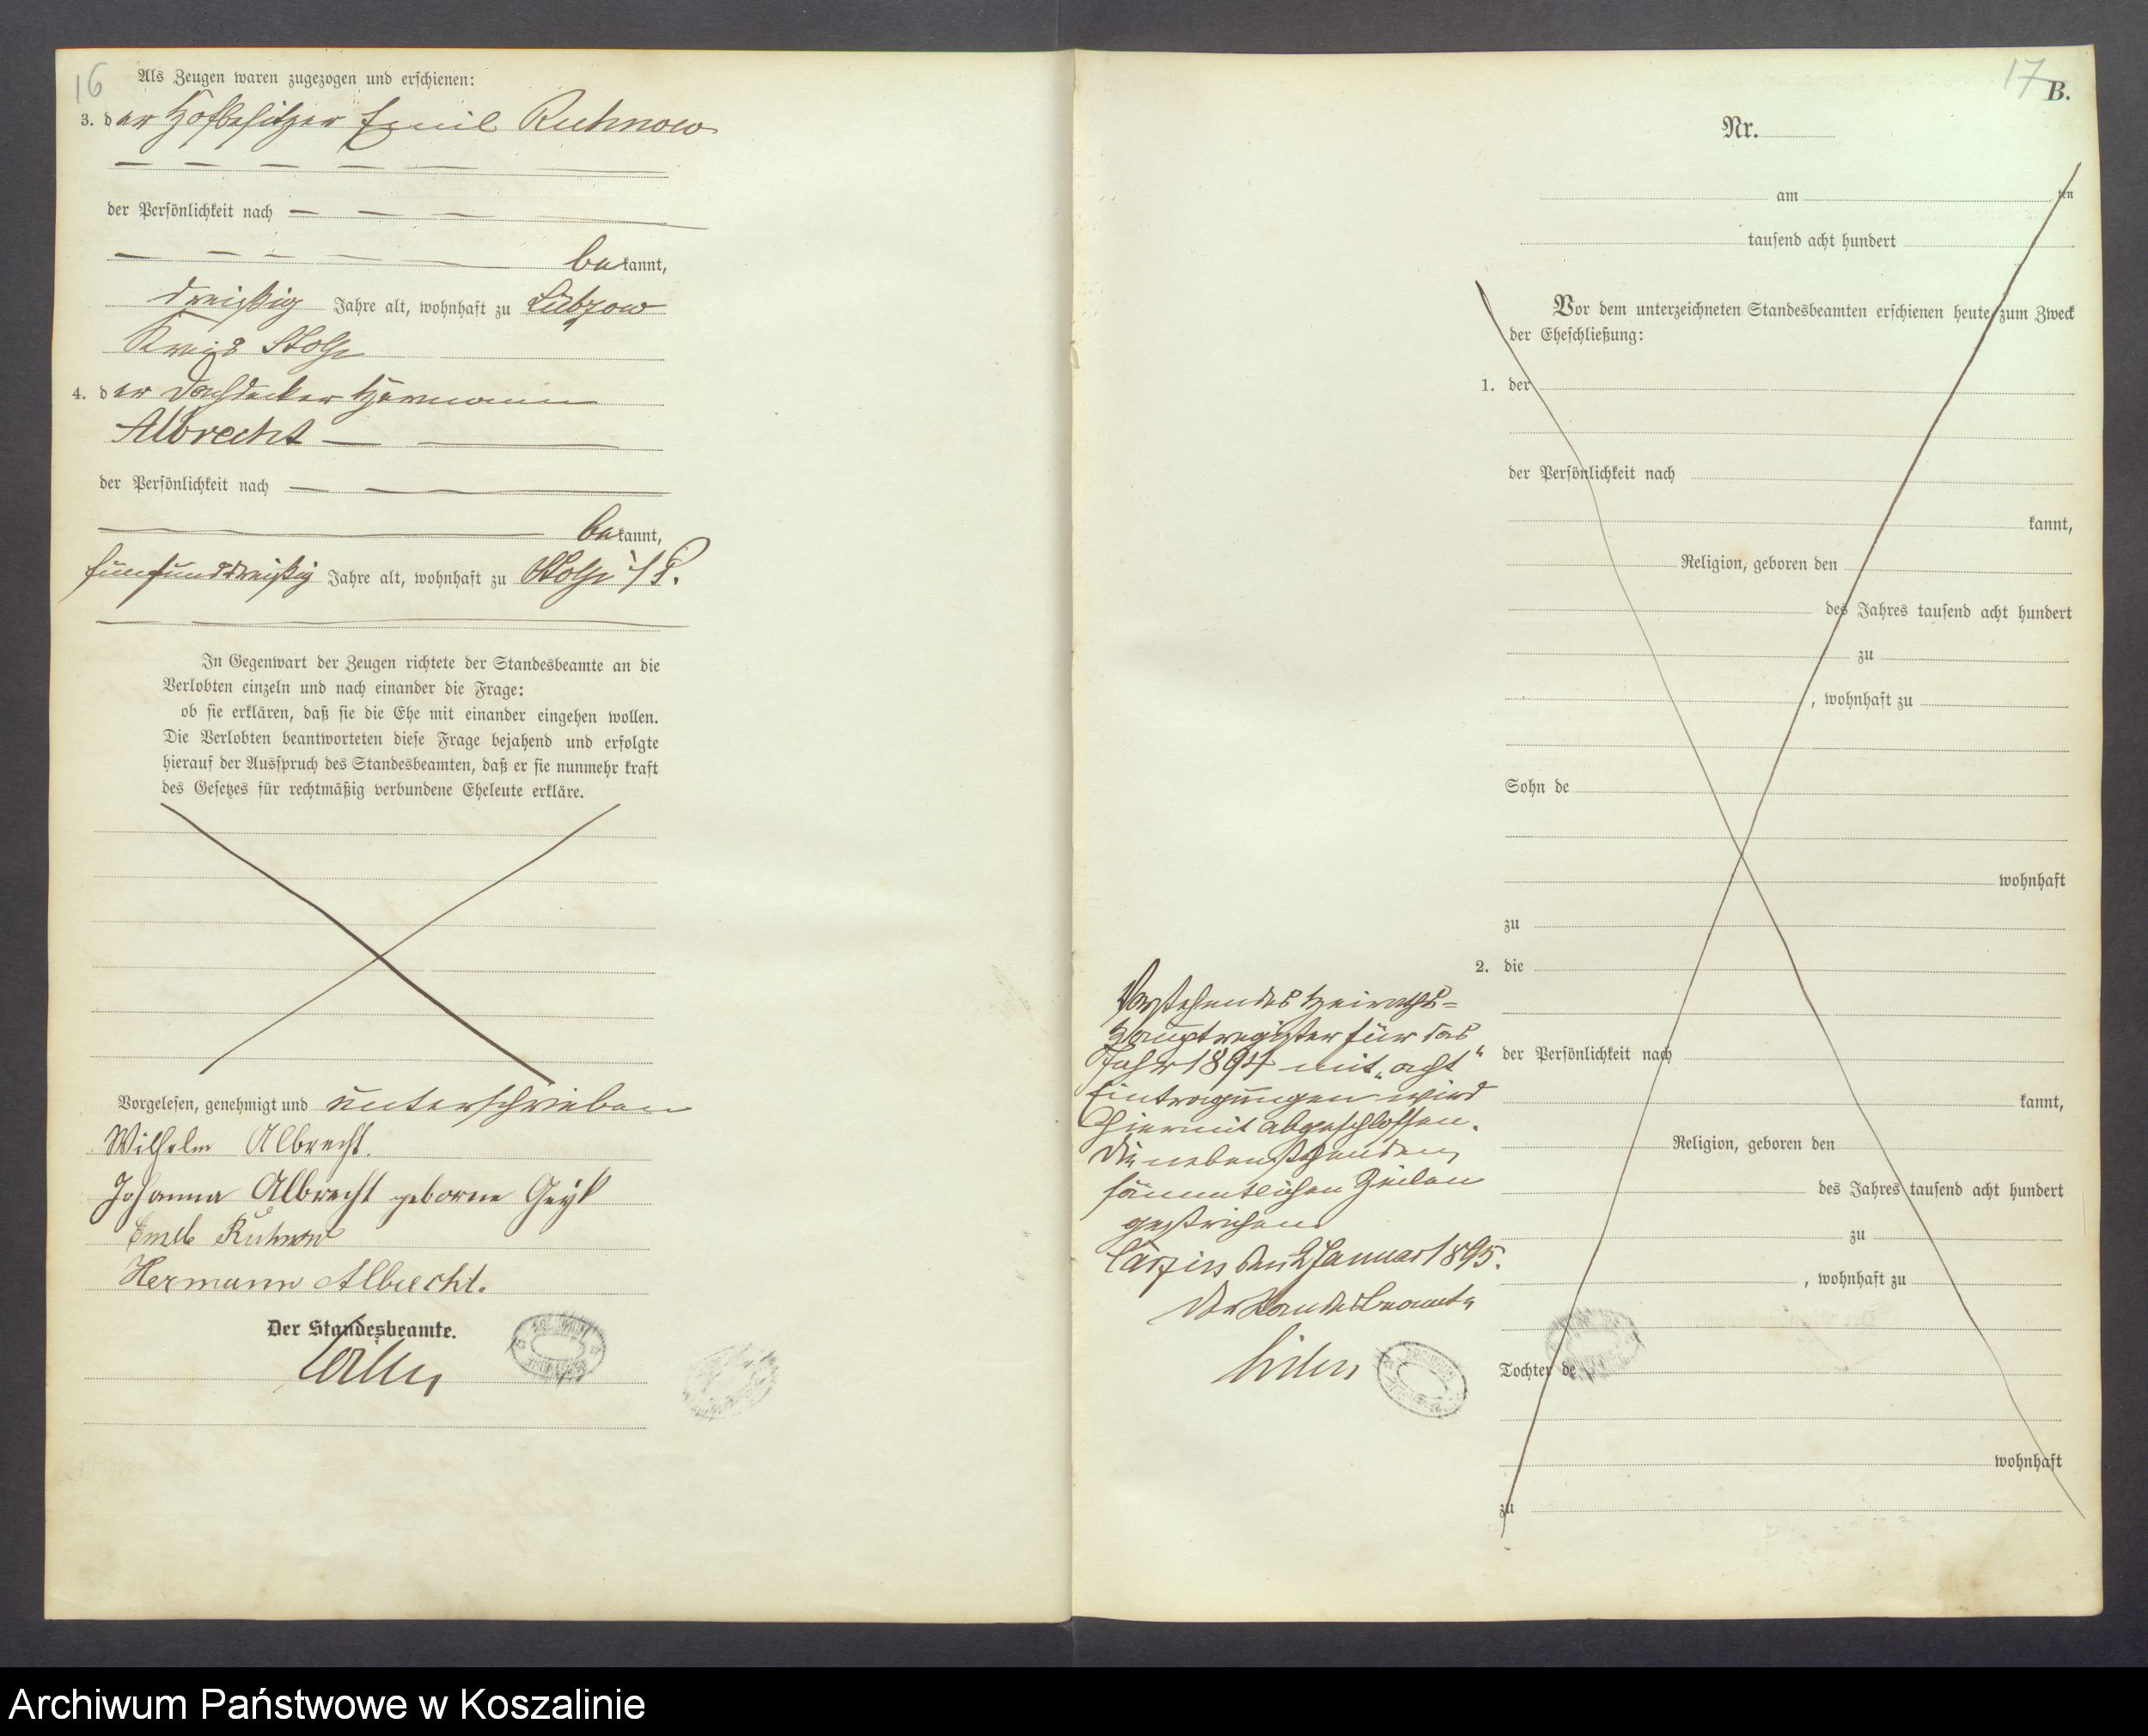 16
Als Zeugen waren zugezogen und erschienen:
3. der Hofbesitzer Emil Ruhnow
der Persönlichkeit nach
bekannt,
dreißig Jahre alt, wohnhaft zu Lübzow
Kreis Stolp
4. der Dachdecker Hermann
Albrecht
der Persönlichkeit nach
bekannt,
fünfunddreißig Jahre alt, wohnhaft zu Stolp i/P.
In Gegenwart der Zeugen richtete der Standesbeamte an die
Verlobten einzeln und nach einander die Frage:
ob sie erklären, daß sie die Ehe mit einander eingehen wollen.
Die Verlobten beantworteten diese Frage bejahend und erfolgte
hierauf der Ausspruch des Standesbeamten, daß er sie nunmehr kraft
des Gesetzes für rechtmäßig verbundene Eheleute erkläre.
Vorgelesen, genehmigt und unterschrieben
Wilhelm Albrecht.
Johanna Albrecht geborne
Emil Ruhnow
Hermann Albrecht.
Der Standesbeamte.
17
B.
Nr.
am ten
tausend acht hundert
Vor dem unterzeichneten Standesbeamten erschienen heute zum Zweck
der Eheschließung:
1. der
der Persönlichkeit nach
kannt,
Religion, geboren den
des Jahres tausend acht hundert
zu
, wohnhaft zu
Sohn de
wohnhaft
zu
2. die
der Persönlichkeit nach
kannt,
Religion, geboren den
des Jahres tausend acht hundert
zu
, wohnhaft zu
Tochter de
wohnhaft
zu
Vorstehendes Heiraths-
Hauptregister für das
Jahr 1894 mit „acht“
Eintragungen wird
hiermit abgeschlossen.
Die nebenstehenden
sämmtlichen Zeilen
gestrichen
den 2 Januar 1895.
Der Standesbeamte
Archiwum Państwowe w Koszalinie